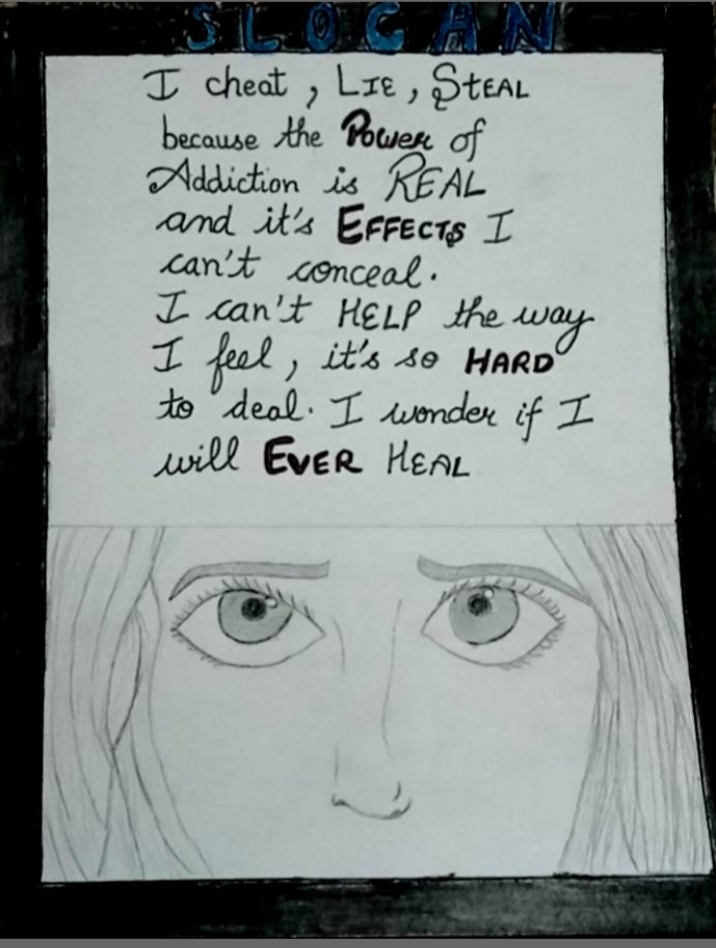 SLOGAN
I cheat, LIE, STEAL
because the Power of
Addiction is REAL
and it's EFFECTS I
can't conceal.
I can't HELP the way
I feel, it's so HARD
to deal. I wonder if I
will EVER HEAL